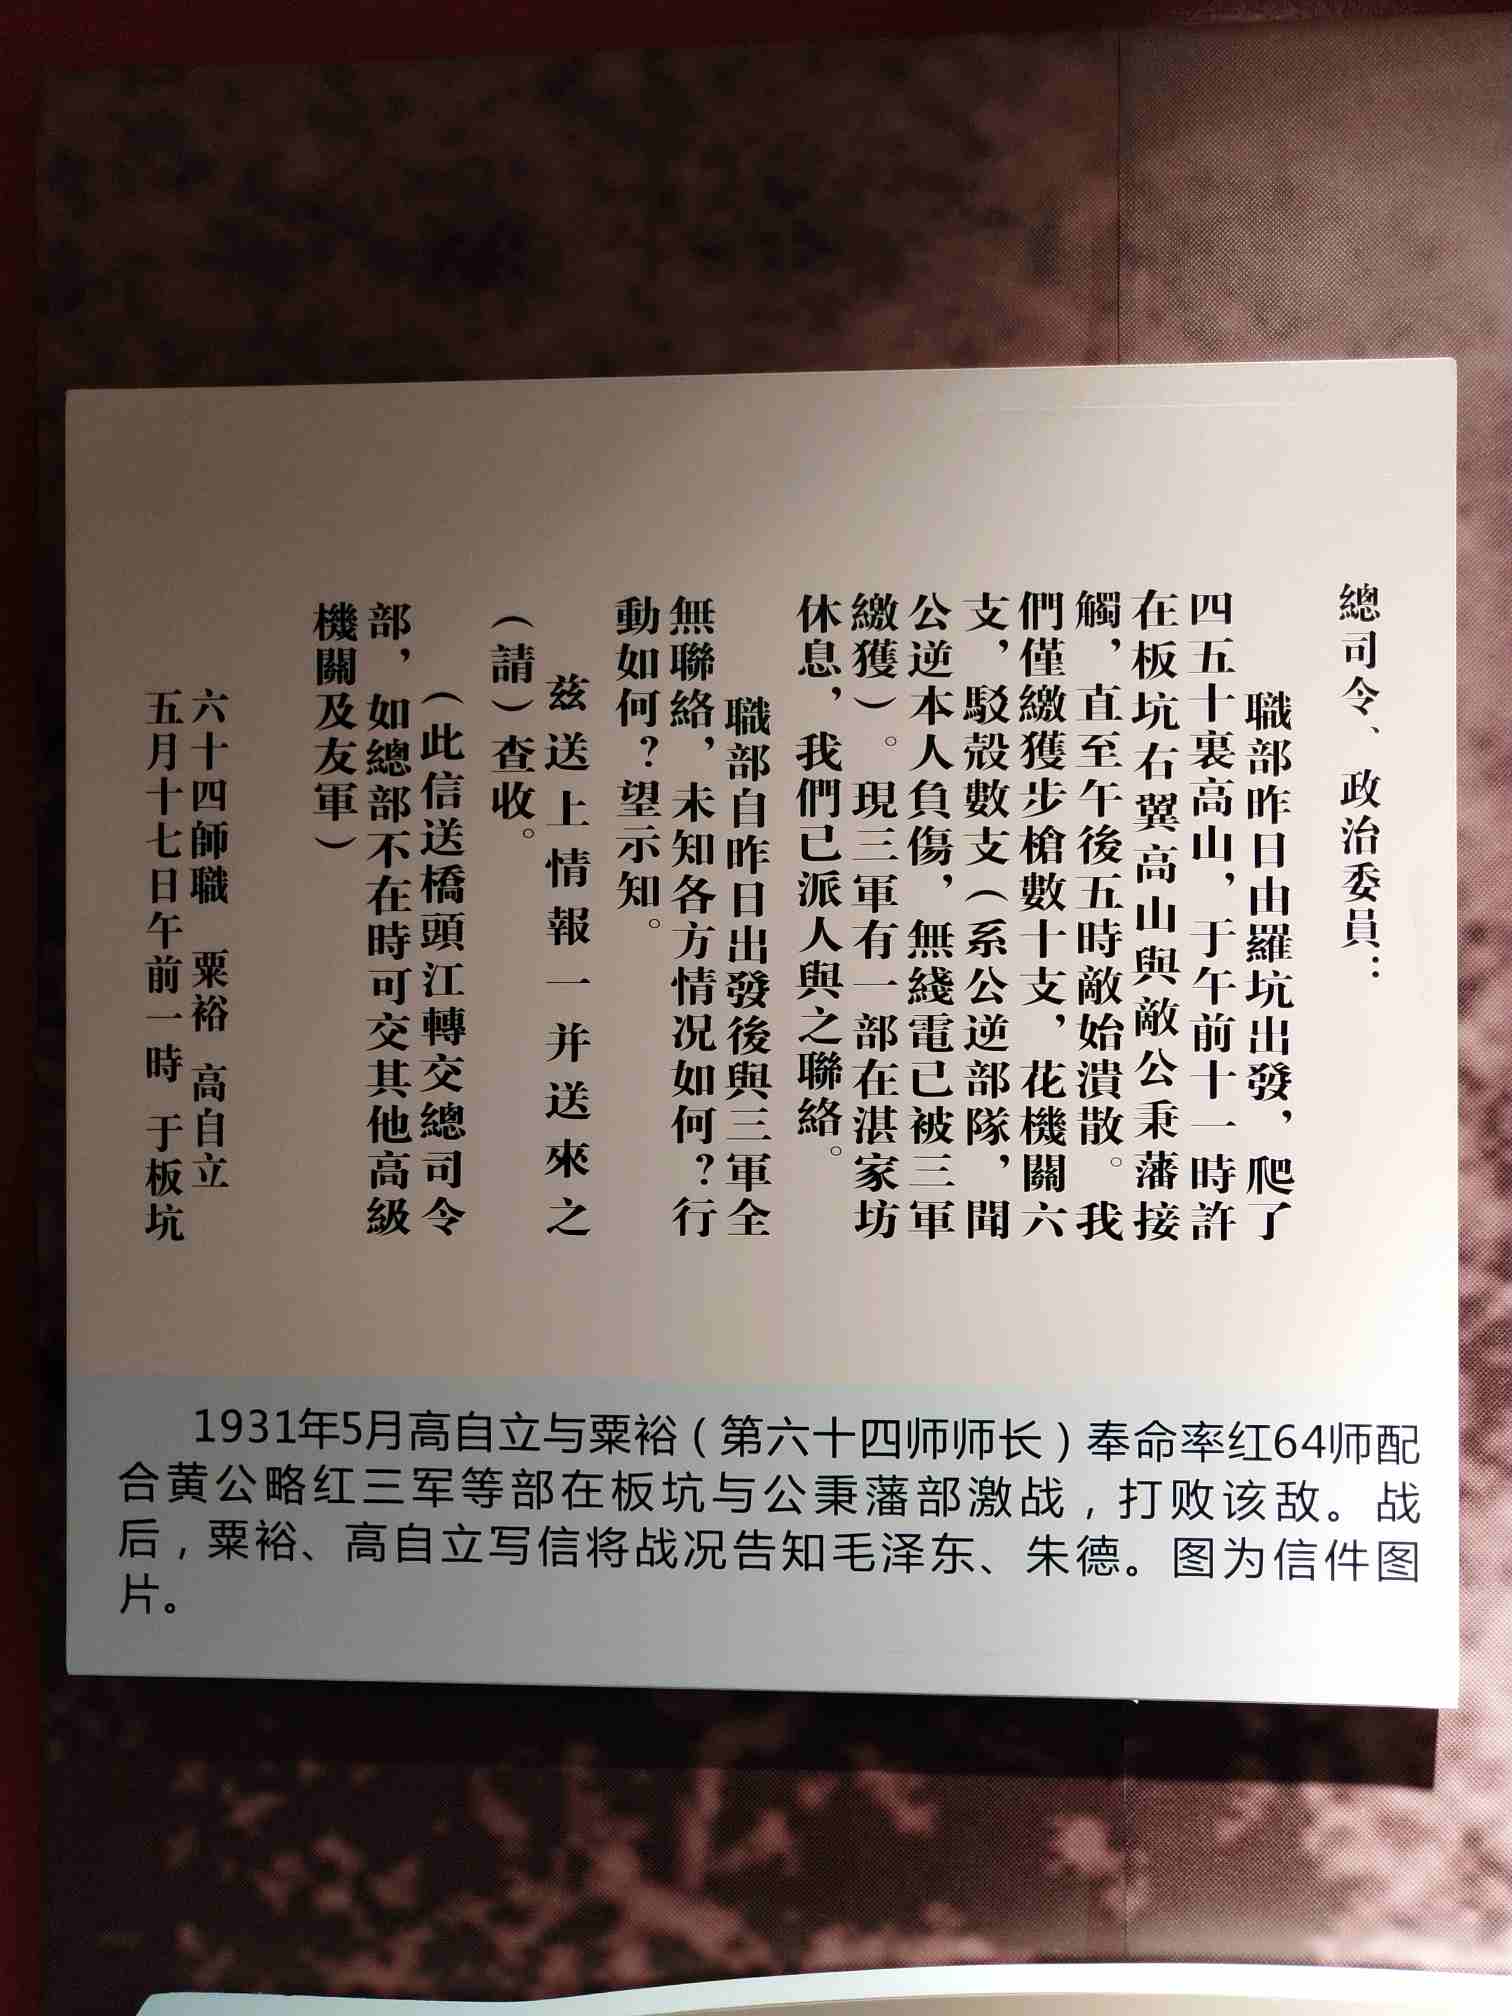 總司令、政治委員：
職部昨日由羅坑出發，爬了
四五十裏高山，于午前十一時許
在板坑右翼高山與敵公秉藩接
觸，直至午後五時敵始潰散。我
們僅繳獲步槍數十支，花機關六
支，駁殼數支（系公逆部隊，聞
公逆本人負傷，無綫電已被三軍
繳獲）。現三軍有一部在湛家坊
休息，我們已派人與之聯絡。
職部自昨日出發後與三軍全
無聯絡，未知各方情况如何？行
動如何？望示知。
兹送上情報一并送來之
（請）查收。
（此信送橋頭江轉交總司令
部，如總部不在時可交其他高級
機關及友軍）
六十四師職 粟裕 高自立
五月十七日午前一時 于板坑
1931年5月高自立与粟裕（第六十四师师长）奉命率红64师配
合黄公略红三军等部在板坑与公秉藩部激战，打败该敌。战
后，粟裕、高自立写信将战况告知毛泽东、朱德。图为信件图
片。